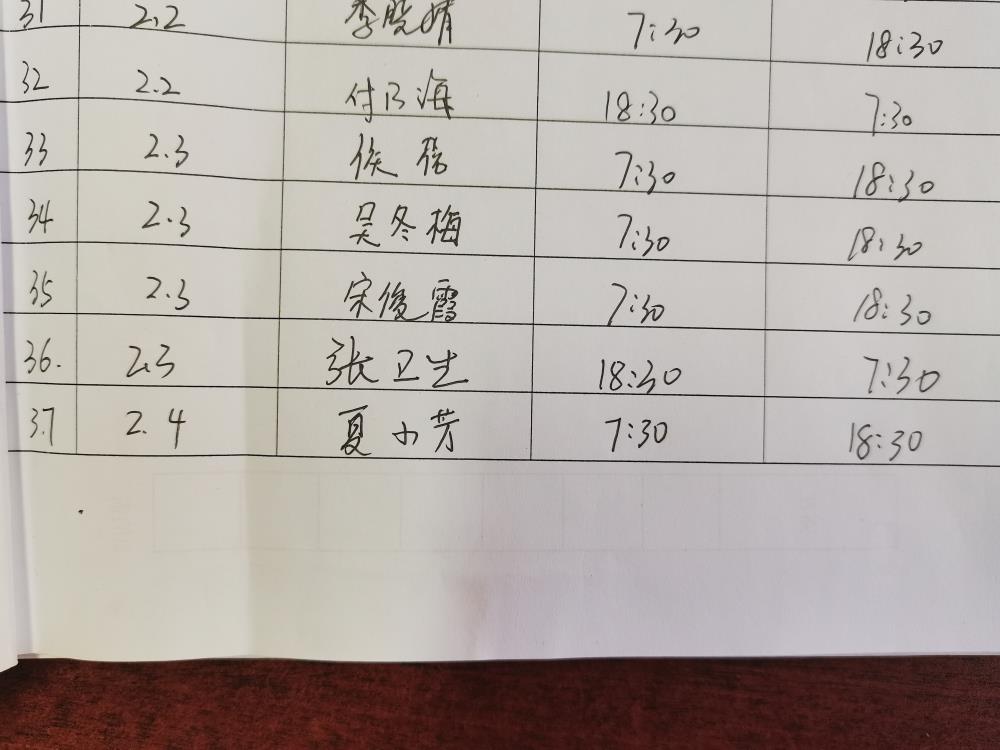 31 2.2 李晓婧 7:30 18:30
32 2.2 付乃海 18:30 7:30
33 2.3 侯 7:30 18:30
34 2.3 吴冬梅 7:30 18:30
35 2.3 宋俊霞 7:30 18:30
36. 2.3 张卫生 18:30 7:30
37 2.4 夏小芳 7:30 18:30